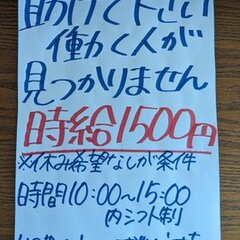 助けて下さい
働く人が
見つかりません
時給1500円
※休み希望なしが条件
時間10:00~15:00
内シフト制